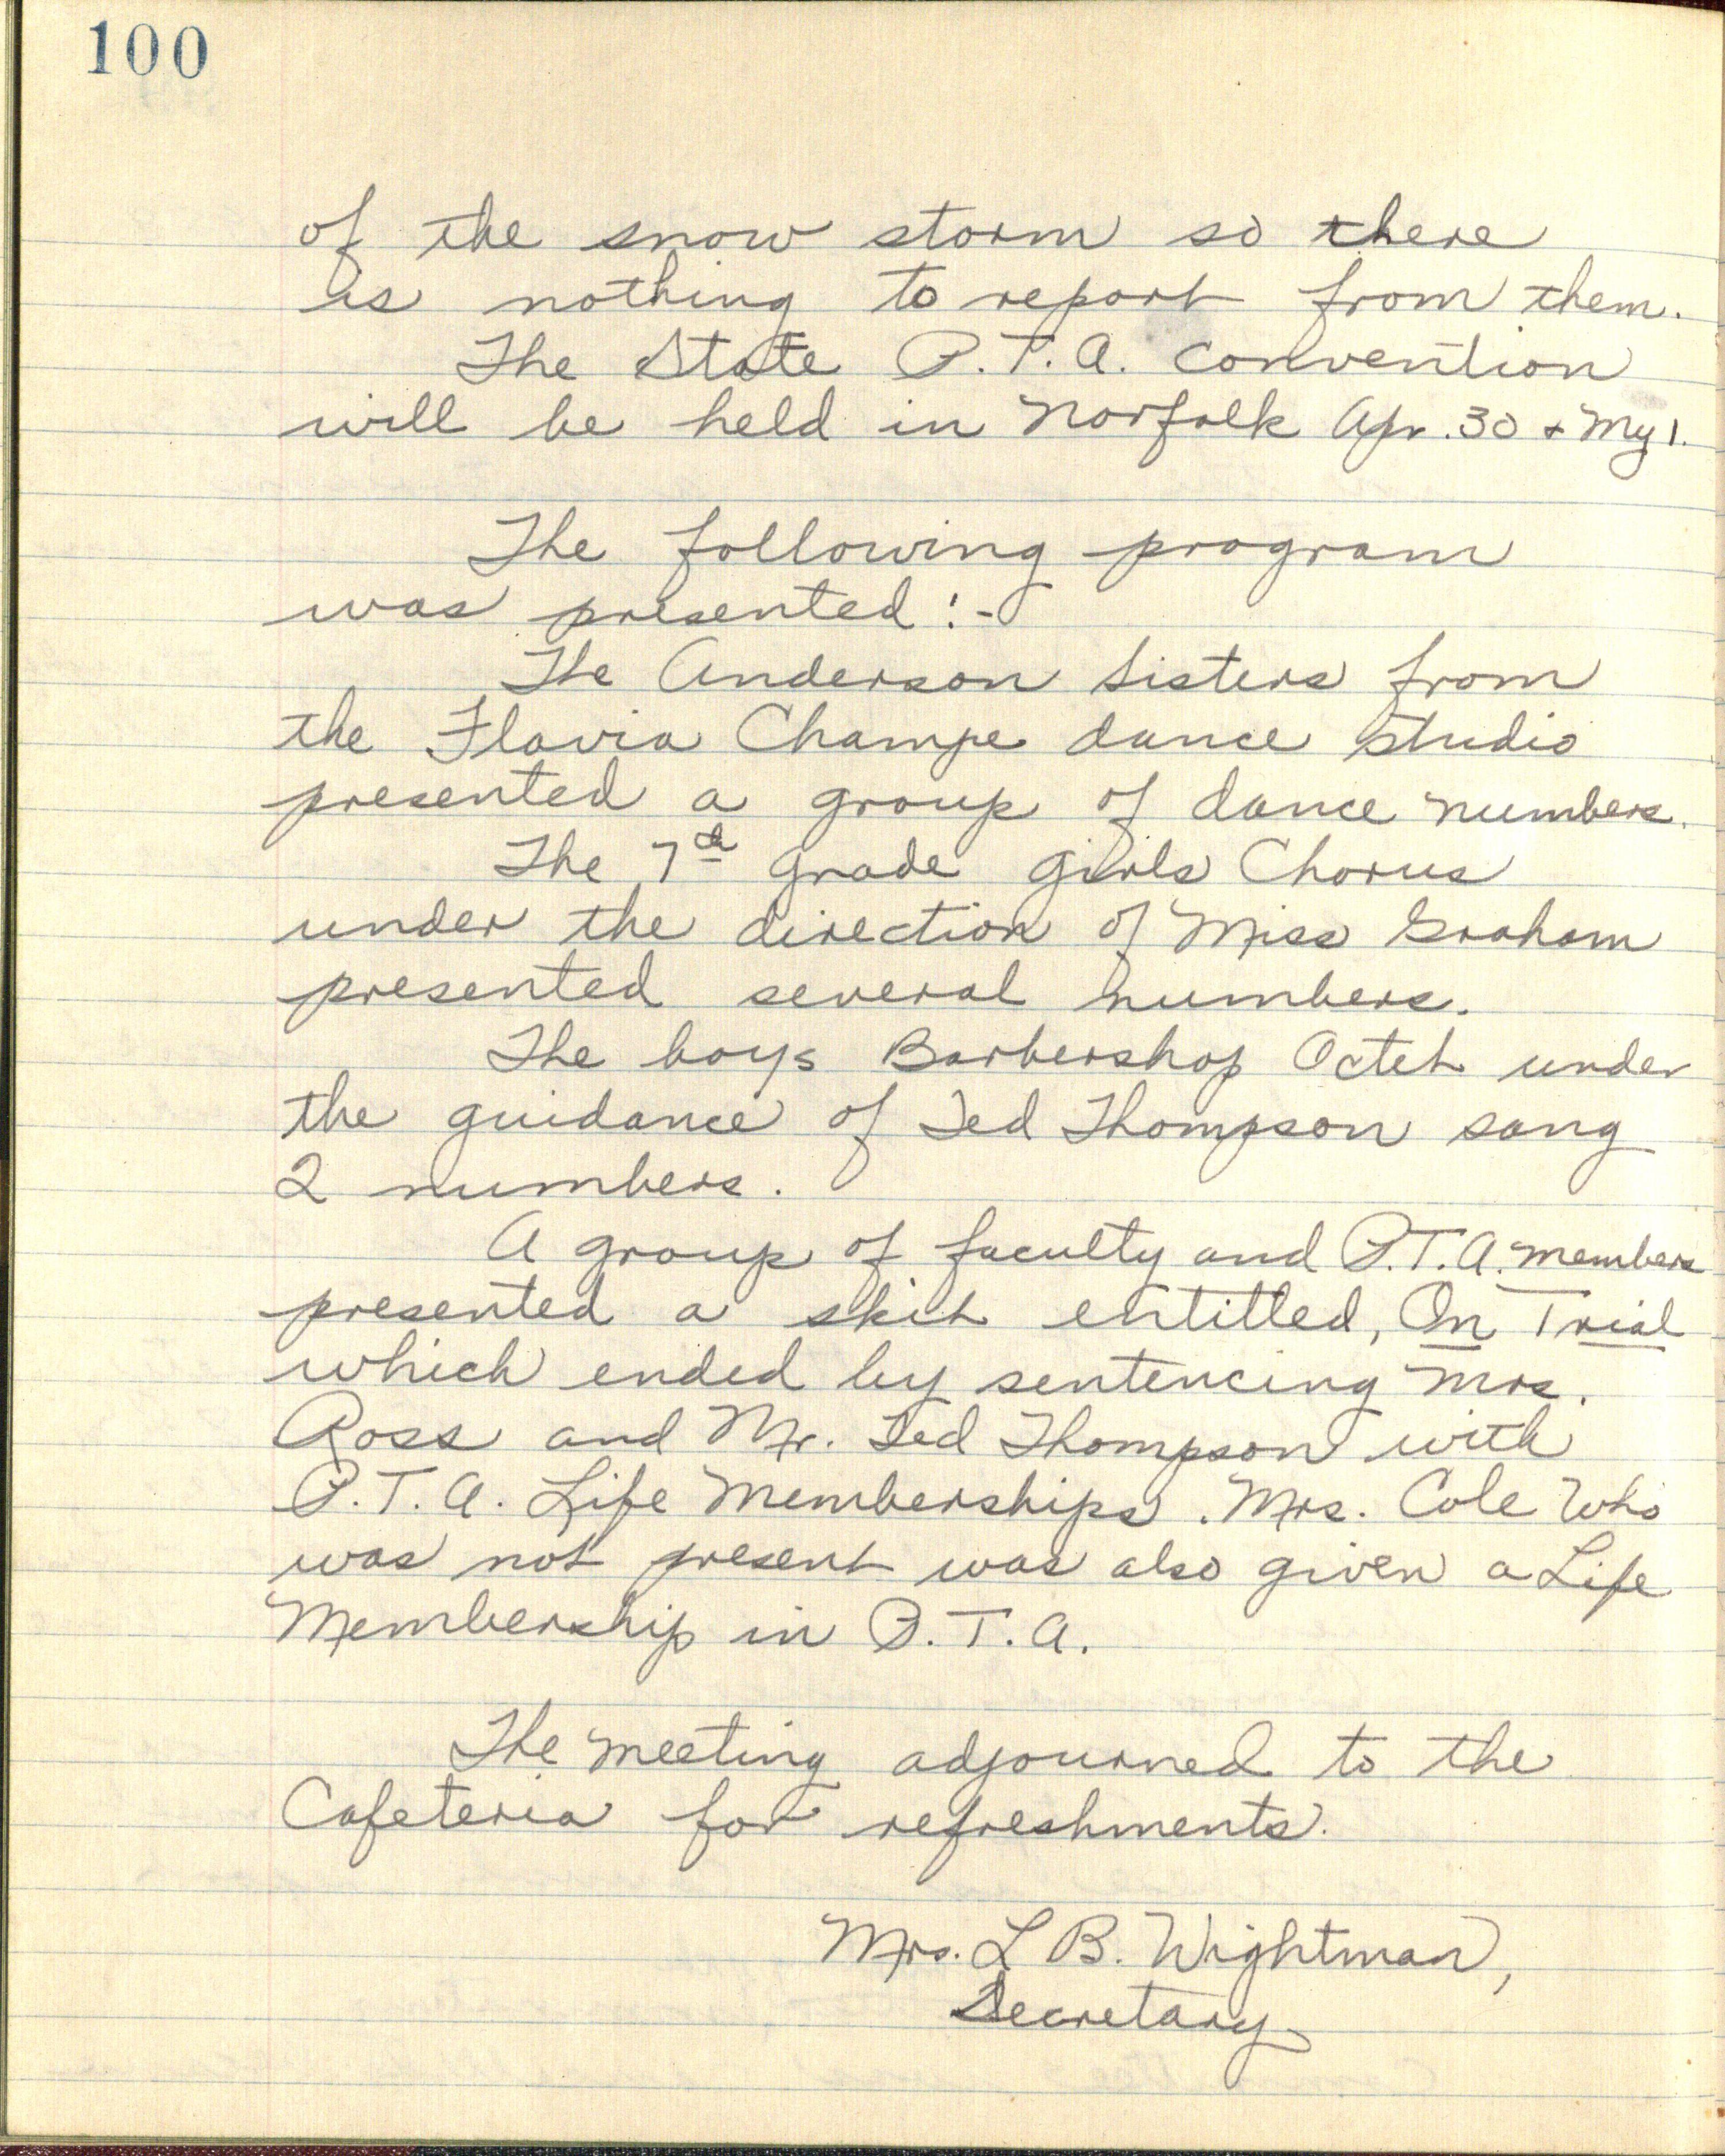 100
of the snow storm so there
is nothing to report from them.
The State P.T.A. Convention
will be held in Norfolk Apr. 30 + My 1.
The following program
was presented :-
The Anderson Sisters from
the Flavia Champe dance studio
presented a group of dance numbers.
The 7th grade girls Chorus
under the direction of Miss Graham
presented several numbers.
The boys Barbershop Octet under
the guidance of Ted Thompson sang
2 numbers.
A group of faculty and P.T.A. members
presented a skit entitled, On Trial
which ended by sentencing Mrs.
Ross and Mr. Ted Thompson with
P.T.A. Life Memberships. Mrs. Cole who
was not present was also given a Life
Membership in P.T.A.
The meeting adjourned to the
Cafeteria for refreshments.
Mrs. L B. Wightman,
Secretary